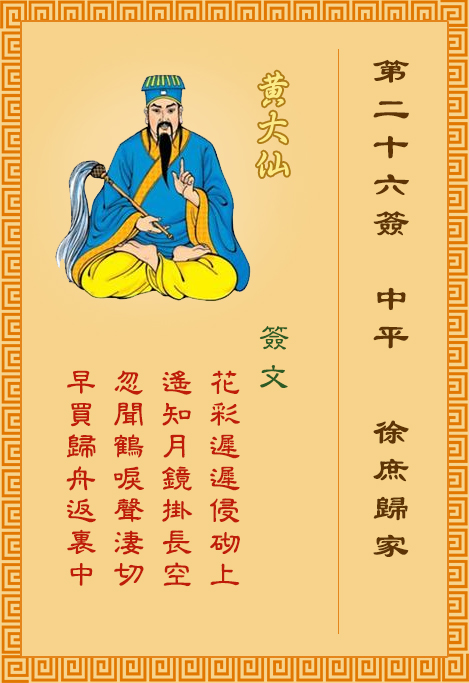 第二十六簽 中平 徐庶歸家
黄大仙
簽文
花彩遲遲侵砌上
遙知月鏡掛長空
忽聞鶴唳聲淒切
早買歸舟返裏中